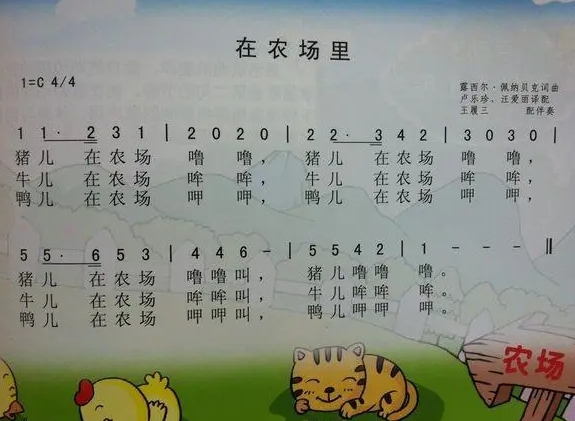 在农场里
1=C 4/4
露西尔·佩纳贝克词曲
卢乐珍、汪爱丽译配
王履三 配伴奏
1 1· 2 3 1 | 2 0 2 0 | 2 2· 3 4 2 | 3 0 3 0 |
猪儿 在农场 噜 噜， 猪儿 在农场 噜 噜，
牛儿 在农场 哞 哞， 牛儿 在农场 哞 哞，
鸭儿 在农场 呷 呷， 鸭儿 在农场 呷 呷，
5 5· 6 5 3 | 4 4 6 - | 5 5 4 2 | 1 - - ‖
猪儿 在农场 噜噜叫， 猪儿噜噜 噜。
牛儿 在农场 哞哞叫， 牛儿哞哞 哞。
鸭儿 在农场 呷呷叫， 鸭儿呷呷 呷。
农场